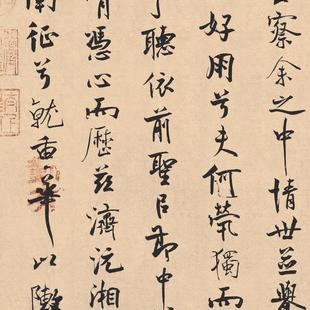 察余之中情世並舉
好朋兮夫何煢獨而
聽依前聖㠯節中
憑心而歷茲濟沅湘
南征兮就重華以敶